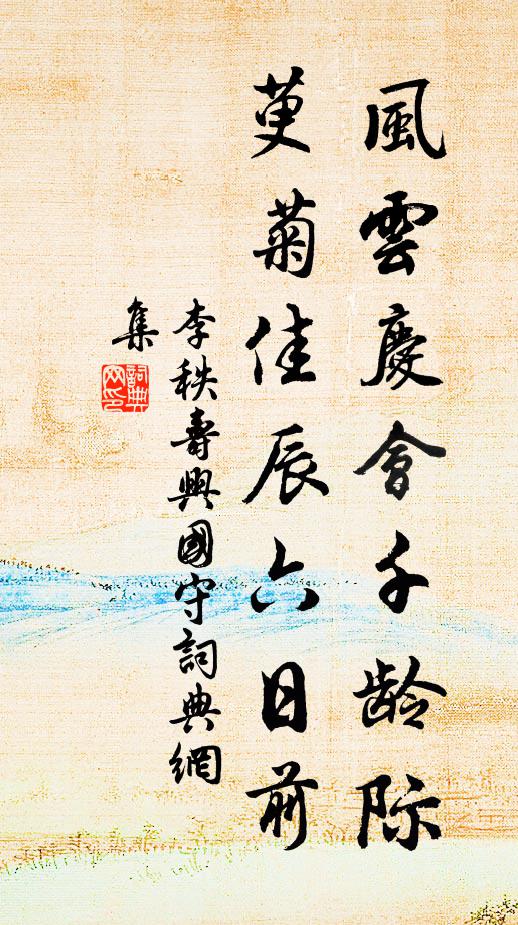 風雲慶會千齡际
萸菊佳辰六日前
李秩壽興國守詞典網
集
詞典
网印